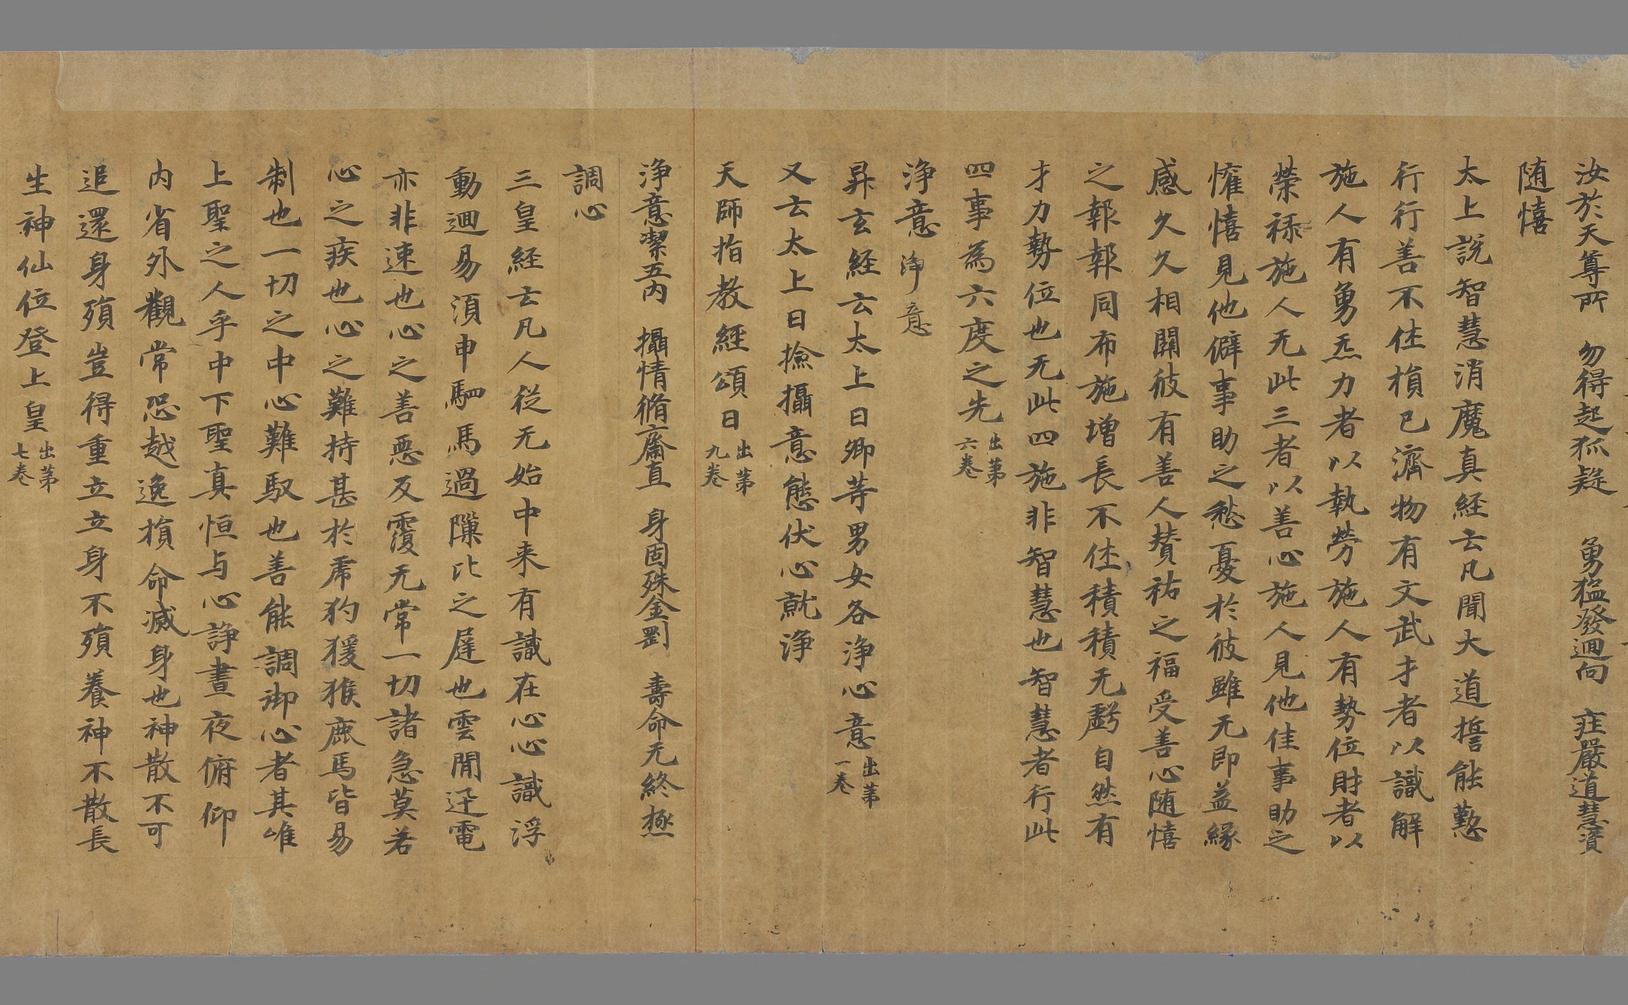 汝於天尊所 勿得起狐疑 勇猛發迴向 疰嚴道慧資
随憘
太上說智慧消魔真経云凡聞大道誓能懃
行行善不住損已濟物有文武才者以識解
施人有勇烝力者以執勞施人有勢位財者以
榮祿施人无此三者以善心施人見他佳事助之
懽憘見他僻事助之愁憂於彼雖无即益緣
感久久相關彼有善人賛祐之福受善心随憘
之報報同布施增長不住積積无虧自然有
才力勢位也无此四施非智慧也智慧者行此
四事為六度之先 出苐六卷
浄意 浄意
昇玄経云太上曰卿等男女各浄心意 出苐一卷
又云太上曰撿攝意態伏心就浄
天師指教經頌曰 出苐九卷
浄意潔五內 攝情脩齋直 身固殊金罰 壽命无終極
調心
三皇経云凡人従无始中来有識在心心識浮
動迴易湏申駟馬過隟比之屖也雲開迊電
亦非速也心之善惡反覆无常一切諸急莫若
心之疾也心之難持甚於席犳猨猴鹿馬皆易
制也一切之中心難馭也善能調御心者其唯
上聖之人乎中下聖真恒与心諍晝夜俯仰
內省外觀常恐越逸損命滅身也神散不可
追還身殞豈得重立立身不殞養神不散長
生神仙位登上皇 出苐七卷